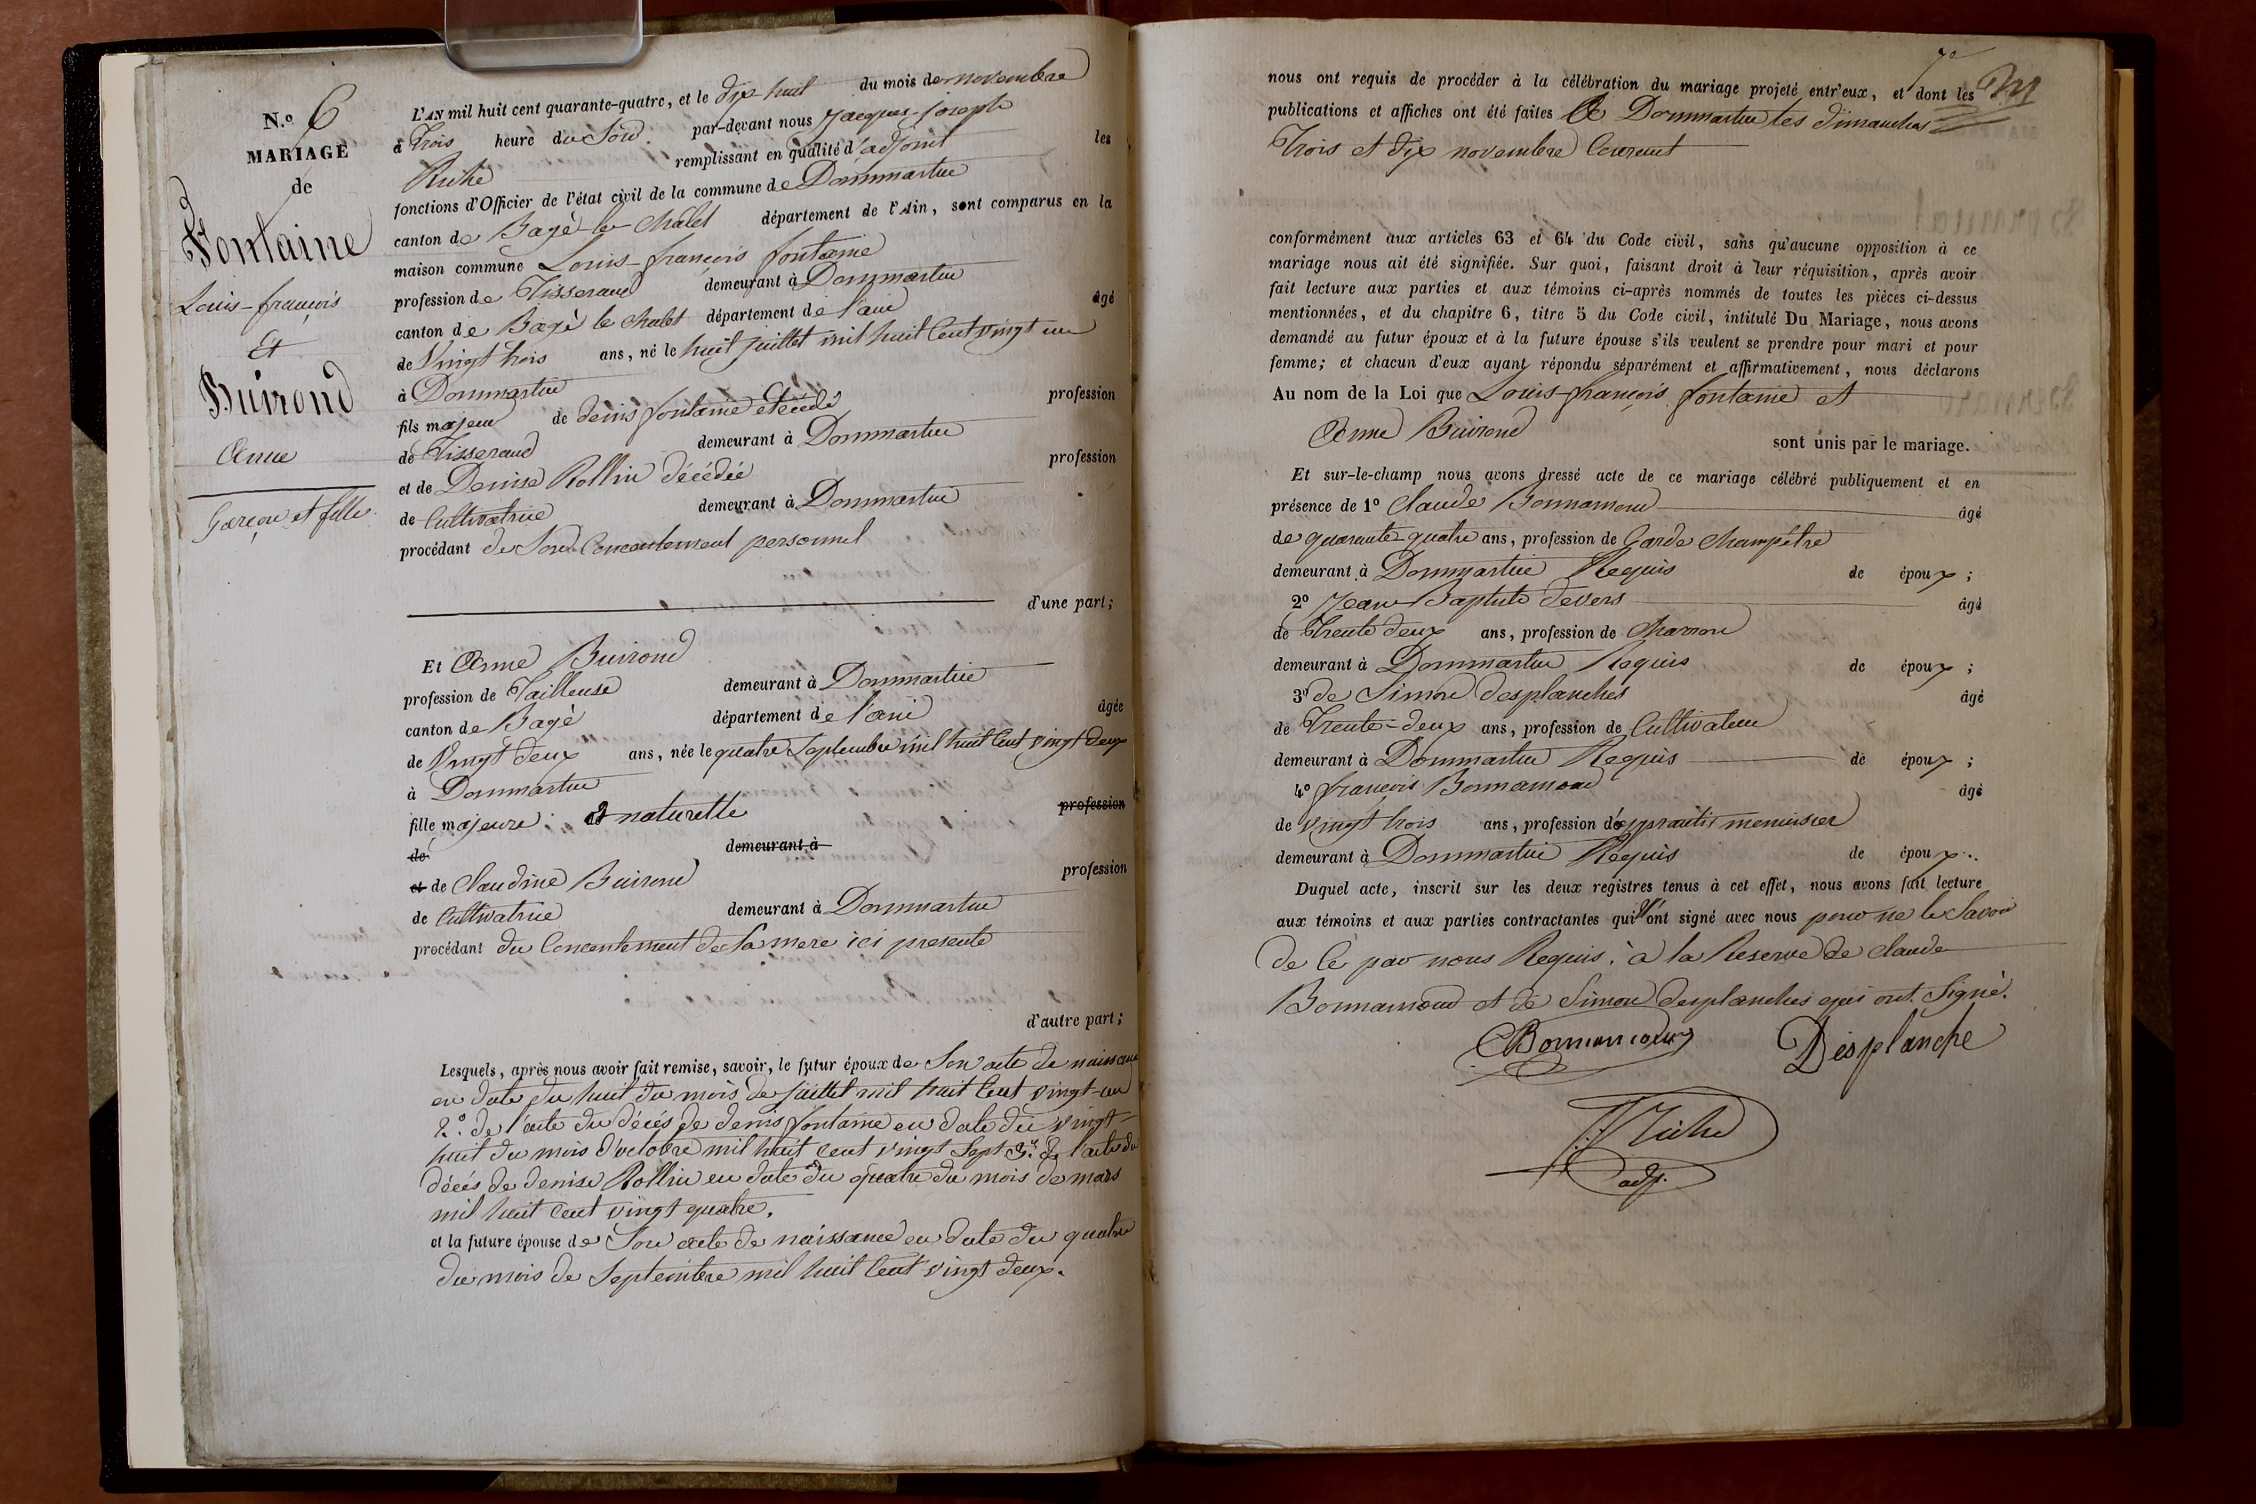 N.º 6
MARIAGE
de
Fontaine
Louis-françois
Et
Buirond
Anne
Garçon et fille
L'AN mil huit cent quarante-quatre, et le dix huit du mois de novembre
à trois heure du Soir par-devant nous Jacques-Joseph
Riche remplissant en qualité d'adjoint les
fonctions d'Officier de l'état civil de la commune de Dommartin
canton de Bagé-le-Chatel département de l'Ain, sont comparus en la
maison commune Louis-françois fontaine
profession de Tisserand demeurant à Dommartin
canton de Bagé le Chatel département de l'ain âgé
de Vingt trois ans, né le huit juillet mil huit Cent vingt un
à Dommartin
fils majeur de denis fontaine décédé profession
de Tisserand demeurant à Dommartin
et de Denise Rollin décédée profession
de Cultivatrice demeurant à Dommartin
procédant de Son Concentement personnel
d'une part;
Et Anne Buirond
profession de Tailleuse demeurant à Dommartin
canton de Bagé département de l'ain âgée
de Vingt deux ans, née le quatre Septembre mil huit Cent vingt deux
à Dommartin
fille majeure et naturelle profession
de demeurant à
et de Claudine Buirond profession
de Cultivatrice demeurant à Dommartin
procédant du Concentement de Sa mere ici presente
d'autre part;
Lesquels, après nous avoir fait remise, savoir, le futur époux de Son acte de naissance
en date du huit du mois de Juillet mil huit Cent vingt-un
2º. de l'acte du décés de denis fontaine en date du vingt-
huit du mois d'octobre mil huit cent vingt Sept 3º. de l'acte du
décés de denise Rollin en date du quatre du mois de mars
mil huit Cent vingt quatre.
et la future épouse de Son acte de naissance en date du quatre
du mois de Septembre mil huit Cent vingt deux.
7e
nous ont requis de procéder à la célébration du mariage projeté entr'eux, et dont les
publications et affiches ont été faites A Dommartin les dimanches
Trois et dix novembre Courant
conformément aux articles 63 et 64 du Code civil, sans qu'aucune opposition à ce
mariage nous ait été signifiée. Sur quoi, faisant droit à leur réquisition, après avoir
fait lecture aux parties et aux témoins ci-après nommés de toutes les pièces ci-dessus
mentionnées, et du chapitre 6, titre 5 du Code civil, intitulé Du Mariage, nous avons
demandé au futur époux et à la future épouse s'ils veulent se prendre pour mari et pour
femme; et chacun d'eux ayant répondu séparément et affirmativement, nous déclarons
Au nom de la Loi que Louis-françois fontaine et
Anne Buirond sont unis par le mariage.
Et sur-le-champ nous avons dressé acte de ce mariage célébré publiquement et en
présence de 1º Claude Bonnamour âgé
de quarante-quatre ans, profession de Garde Champêtre
demeurant à Dommartin Requis de époux;
2º Jean-Baptiste devers âgé
de Trente deux ans, profession de Charron
demeurant à Dommartin Requis de époux;
3º de Simon desplanches âgé
de Trente-deux ans, profession de Cultivateur
demeurant à Dommartin Requis de époux;
4º françois Bonnamour âgé
de vingt trois ans, profession d'apprantis menuisier
demeurant à Dommartin Requis de époux.
Duquel acte, inscrit sur les deux registres tenus à cet effet, nous avons fait lecture
aux témoins et aux parties contractantes qui n'ont signé avec nous pour ne le Savoir
de Ce par nous Requis. à la Reserve de Claude
Bonnamour et de Simon desplanches qui ont Signé.
CBonnamour Desplanche
J.J Riche
adj.